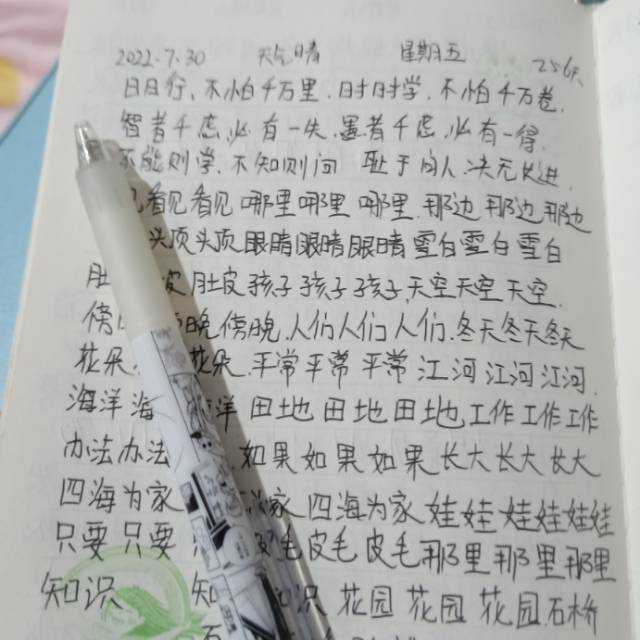 2022.7.30 天气晴 星期五 256天
日日行,不怕千万里,时时学,不怕千万卷.
智者千虑,必有一失,愚者千虑,必有一得.
不能则学,不知则问 耻于问人,决无长进.
看见看见 哪里哪里 哪里.那边 那边那边
头顶头顶 眼睛眼睛眼睛雪白雪白雪白
肚 皮 肚皮 孩子孩子孩子,天空天空 天空.
傍 晚 傍晚,人们人们 人们.冬天冬天冬天
花朵 花朵.平常平常 平常 江河 江河江河.
海洋海 洋 田地 田地 田地 工作 工作工作
办法办法 如果如果 如果 长大 长大 长大
四海为家 家 四海为家 娃娃 娃娃娃娃
只要 只要 毛皮毛皮毛那里那里那里
知识 知 识 花园 花园 花园 石桥